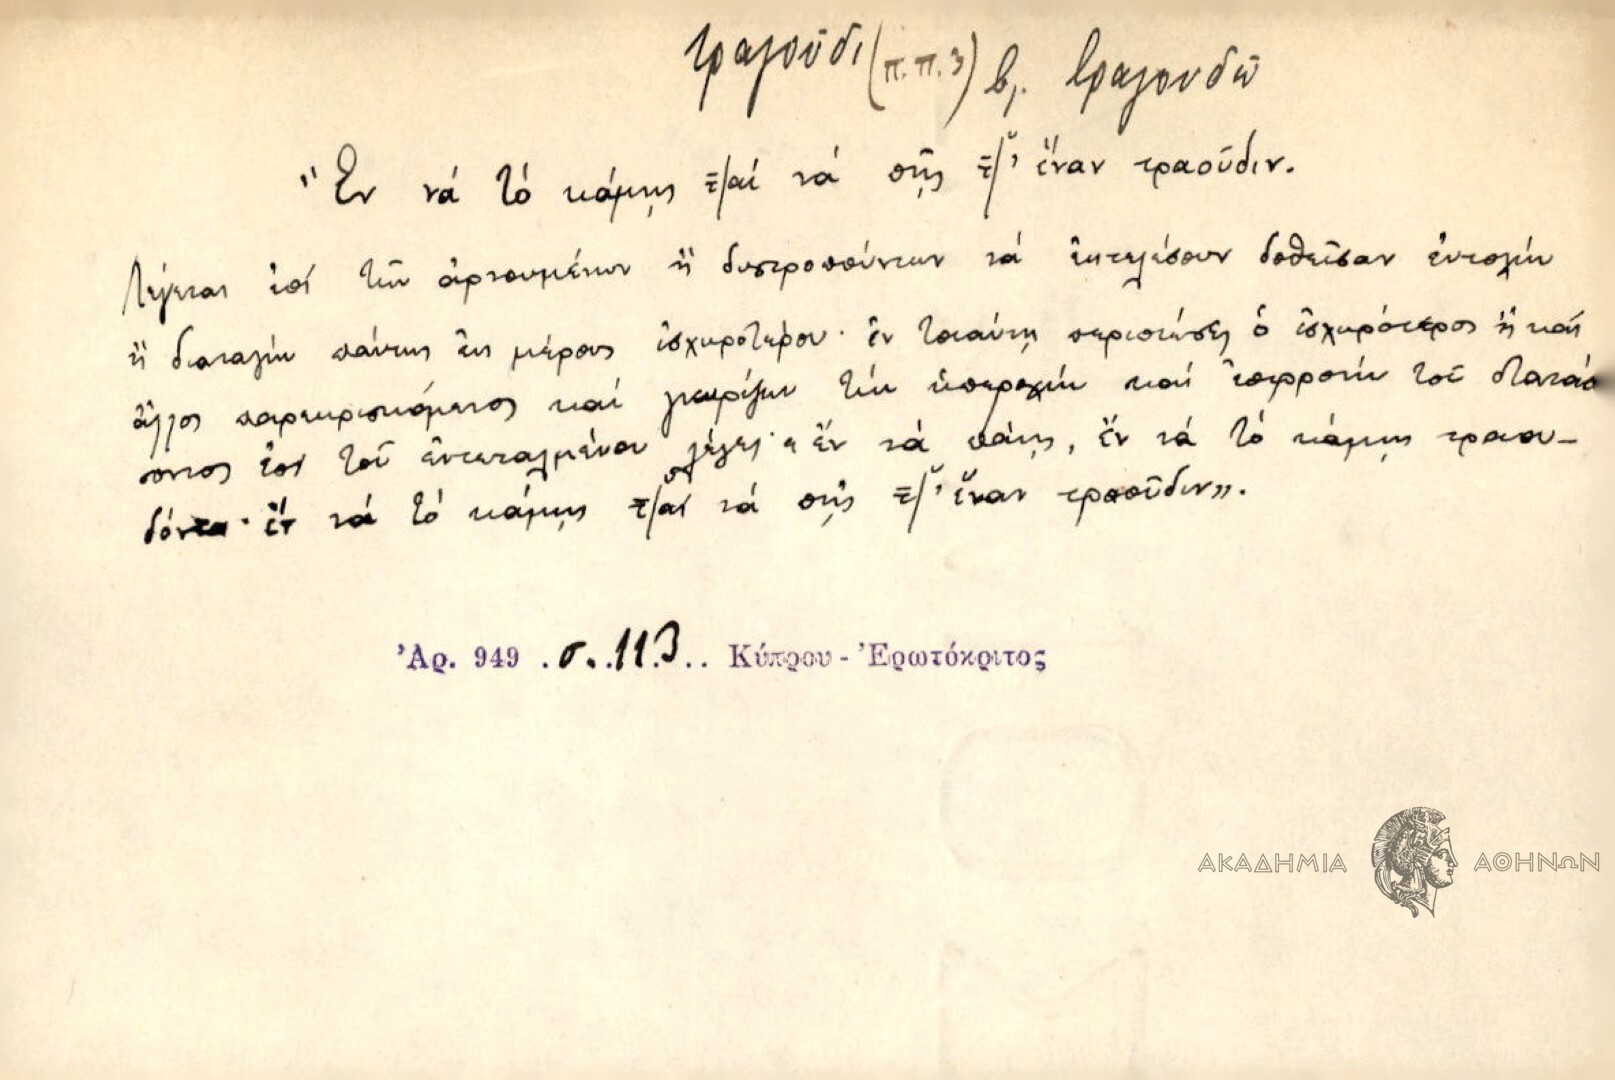 τραγοῦδι (π.π.3) βλ. τραγουδῶ
"Ἔν νά τό κάμῃς τζ̌αί νά πῇς τζ̌’ ἕναν τραοῦδιν.
Λέγεται ἐπί τῶν ἀρνουμένων ἤ δυστροπούντων νά ἐκτελέσουν δοθεῖσαν ἐντολήν
ἤ διαταγήν πάντως ἐκ μέρους ἰσχυροτέρου· ἐν τοιαύτῃ περιστάσει ὁ ἰσχυρότερος ἤ καί
ἄλλος παρευρισκόμενος καί γνωρίζων τήν ὑπεροχήν καί ἐπιρροήν τοῦ διατάσ
σοντος ἐπί τοῦ ἐντεταλμένου λέγει· «ἔν νά πάῃς, ἔν νά τό κάμῃς τραου-
δόντα· ἔν νά τό κάμῃς τζ̌αί νά πῇς τζ̌’ ἕναν τραοῦδιν».
Ἀρ. 949 . σ. 113 .. Κύπρου - Ἐρωτόκριτος
ΑΚΑΔΗΜΙΑ ΑΘΗΝΩΝ